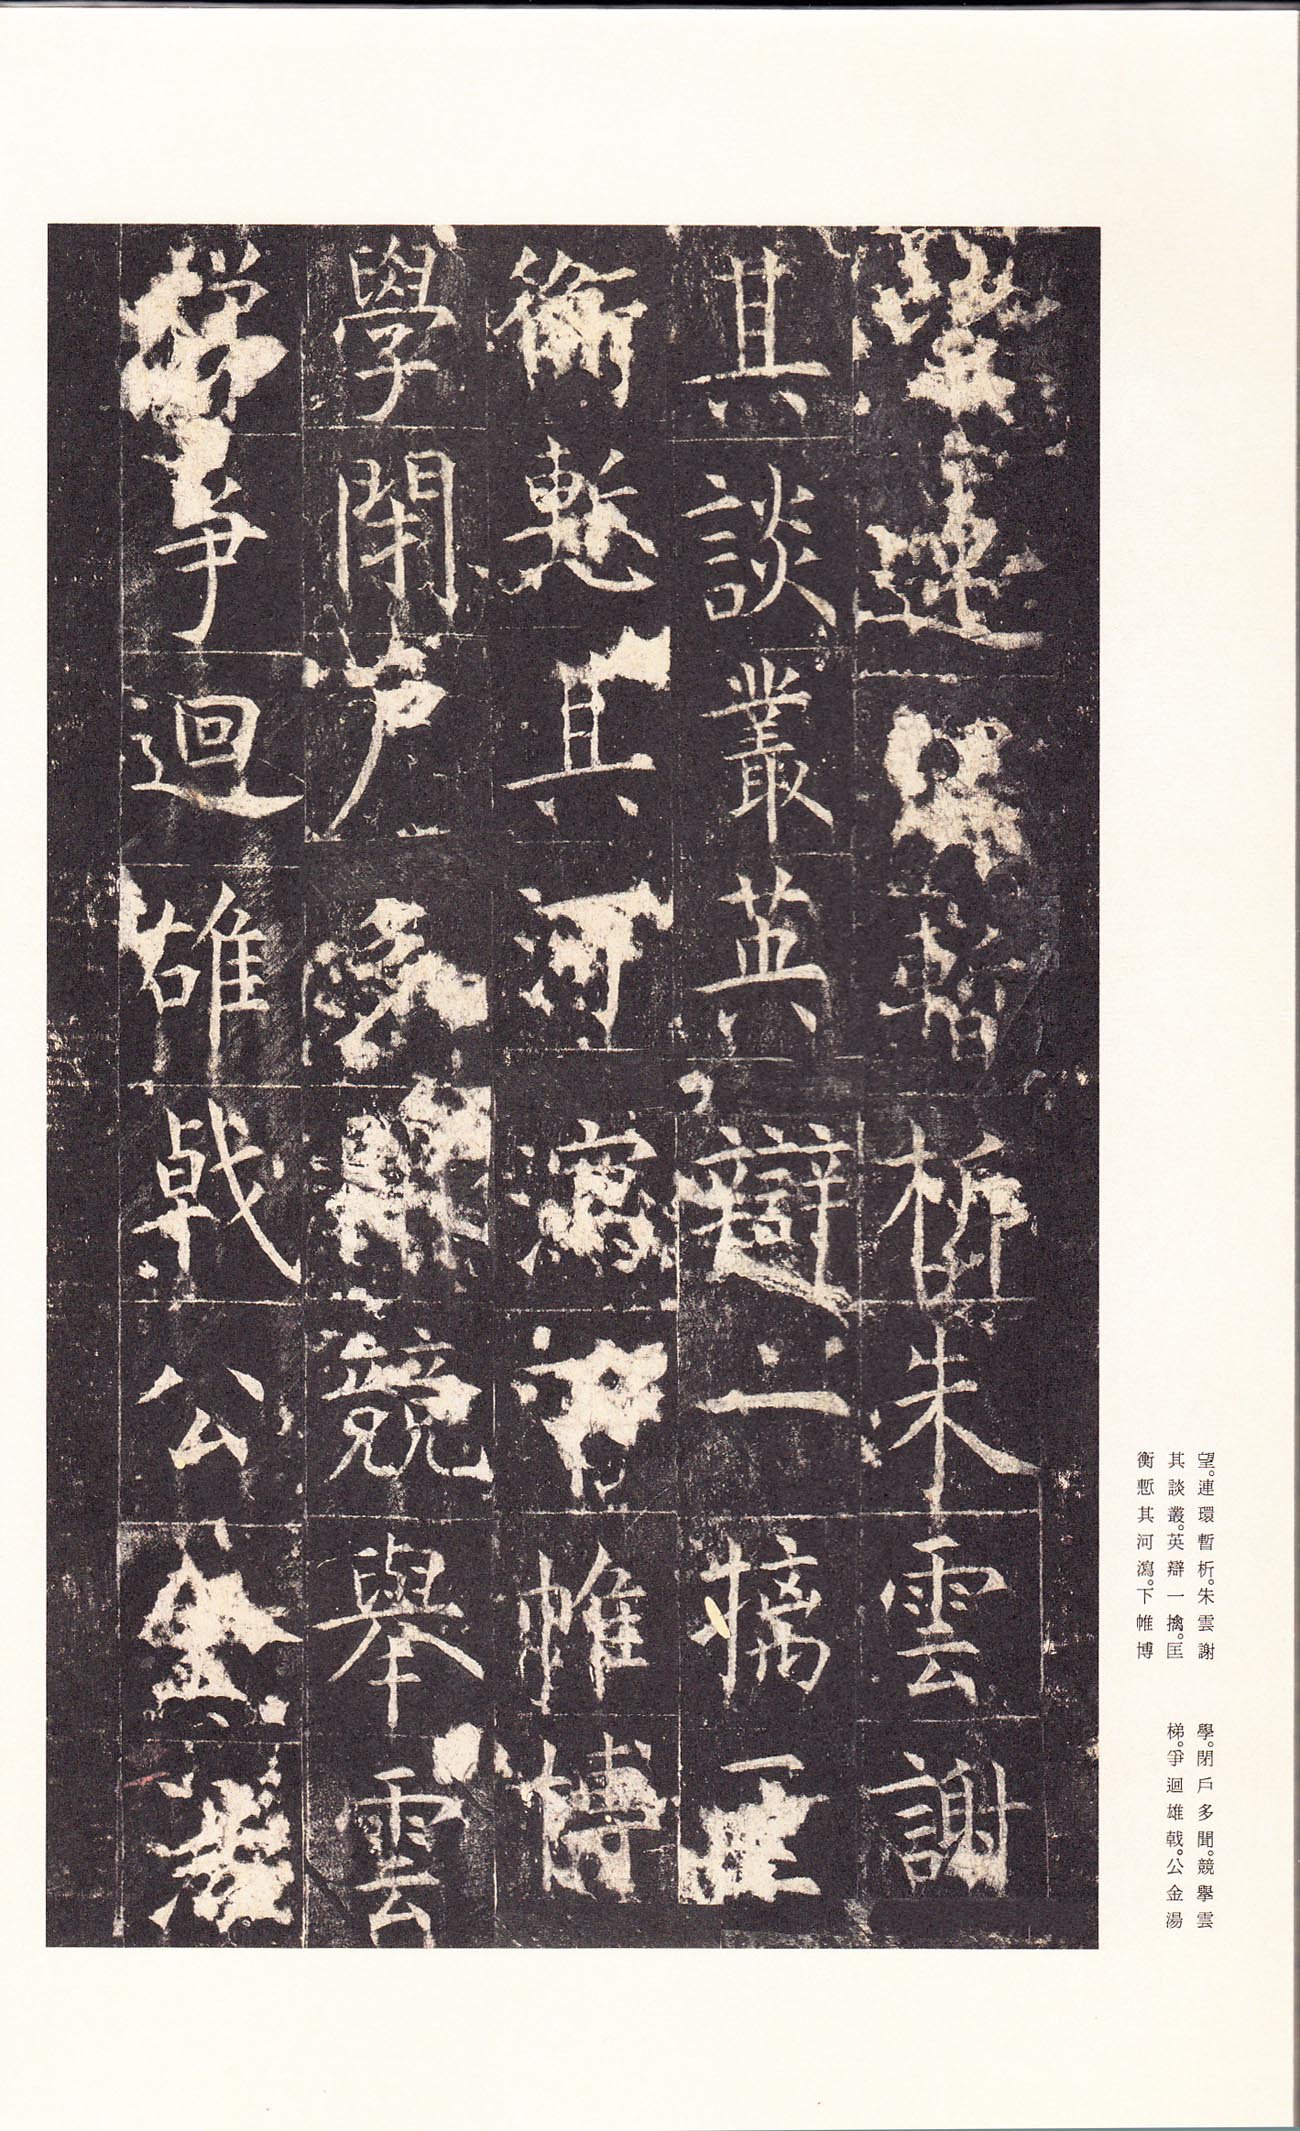 望連環暫析朱雲謝
其談叢英辯一摛匡
衡慙其河瀉下帷博
學閉戶多聞競舉雲
梯爭迴雄戟公金湯
望。連環暫析。朱雲謝
其談叢。英辯一擒。匡
衡慙其河瀉。下帷博
學。閉戶多聞。競擧雲
梯。爭迴雄戟。公金湯